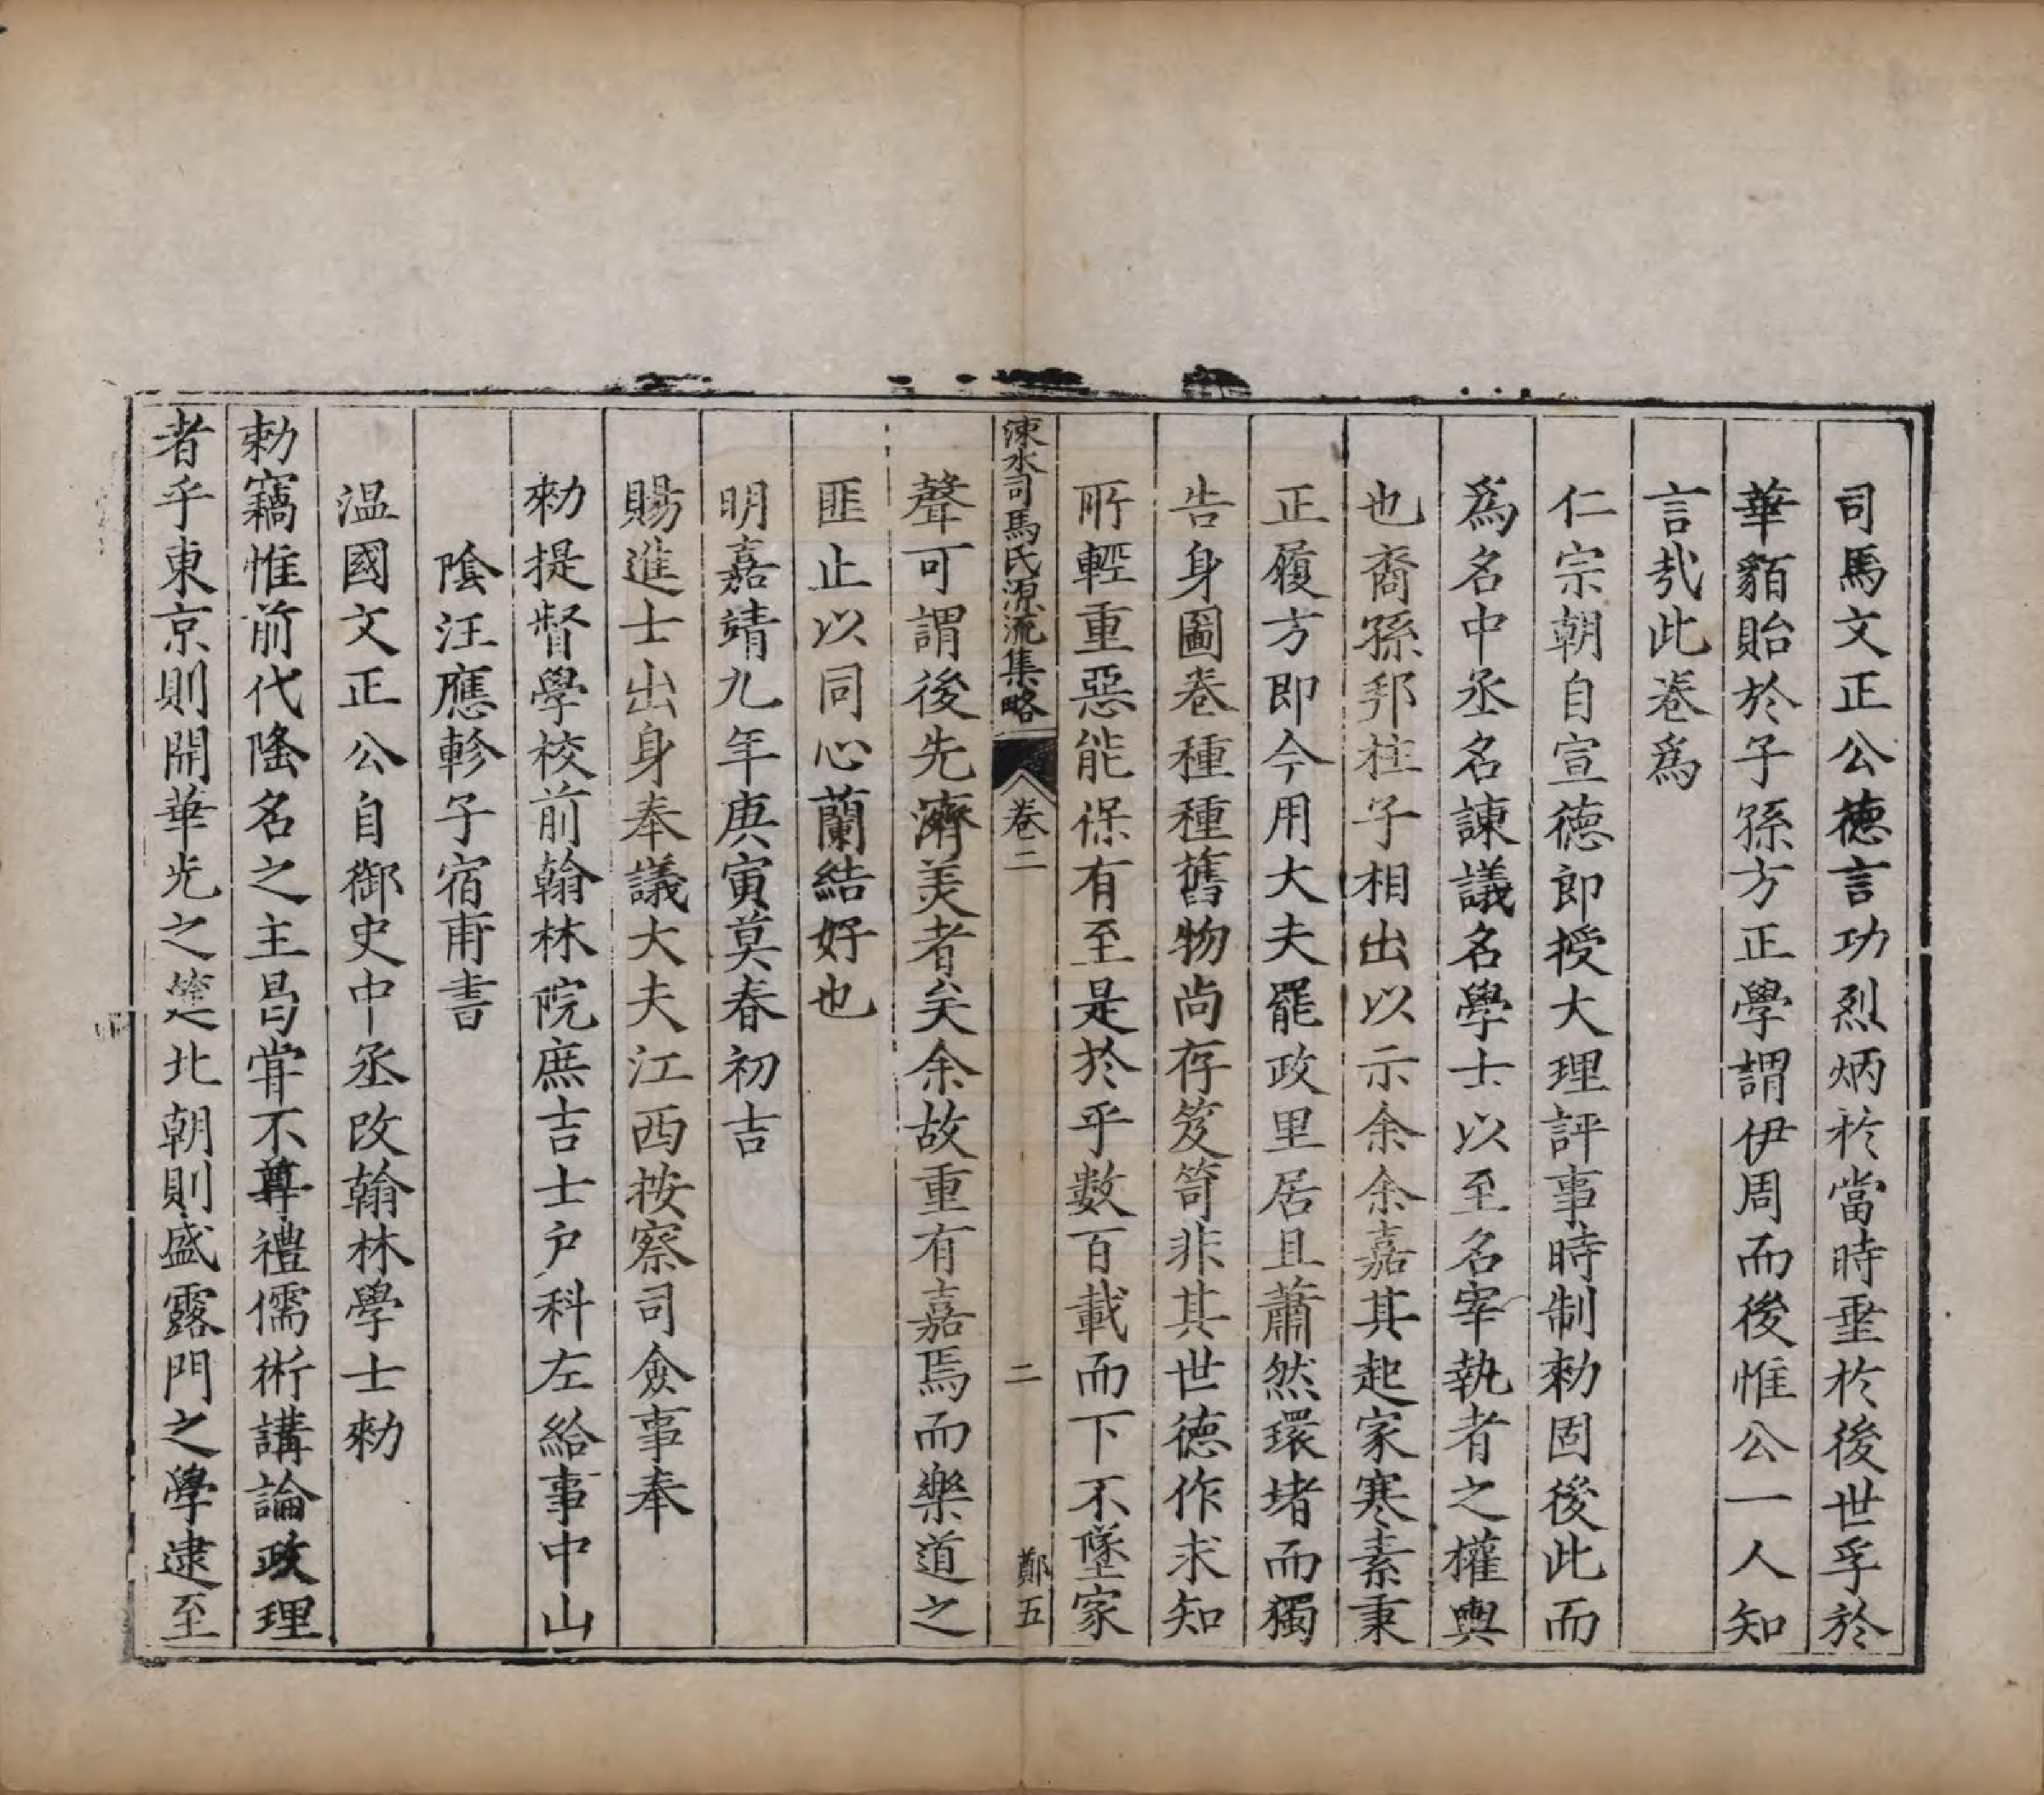 司馬文正公德言功烈炳於當時垂於後世孚於
華貊貽於子孫方正學謂伊周而後惟公一人知
言哉此卷爲
仁宗朝自宣德郎授大理評事時制勑固後此而
爲名中丞名諫議名學士以至名宰執者之權輿
也裔孫邦柱子相出以示余余嘉其起家寒素秉
正履方即今用大夫罷政里居且蕭然環堵而獨
告身圖卷種種舊物尚存笈笥非其世德作求知
所輕重惡能保有至是於乎數百載而下不墜家
涑水司馬氏源流集略
卷二
二
鄭五
聲可謂後先濟美者矣余故重有嘉焉而樂道之
匪止以同心蘭結好也
明嘉靖九年庚寅莫春初吉
賜進士出身奉議大夫江西按察司僉事奉
勑提督學校前翰林院庶吉士户科左給事中山
陰汪應軫子宿甫書
温國文正公自御史中丞改翰林學士勑
勑竊惟前代隆名之主曷甞不尊禮儒術講論政理
者乎東京則開華光之筵北朝則盛露門之學逮至